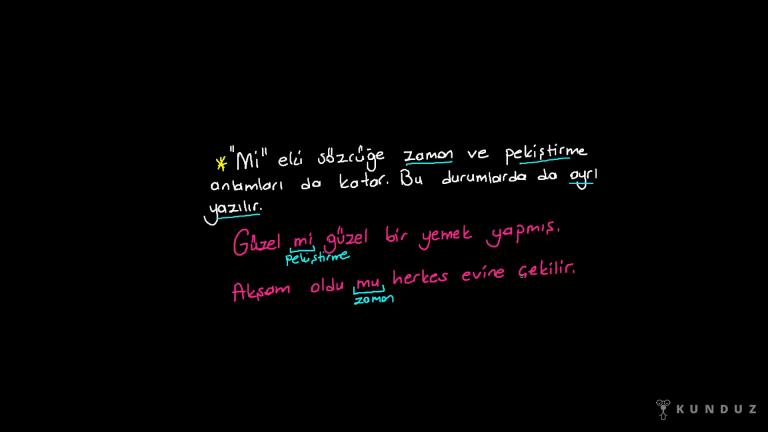 * "Mi" eki sözcüğe zaman ve pekiştirme
anlamları da katar. Bu durumlarda da ayrı
yazılır.
Güzel mi güzel bir yemek yapmış.
pekiştirme
Akşam oldu mu herkes evine çekilir.
zaman
KUNDUZ